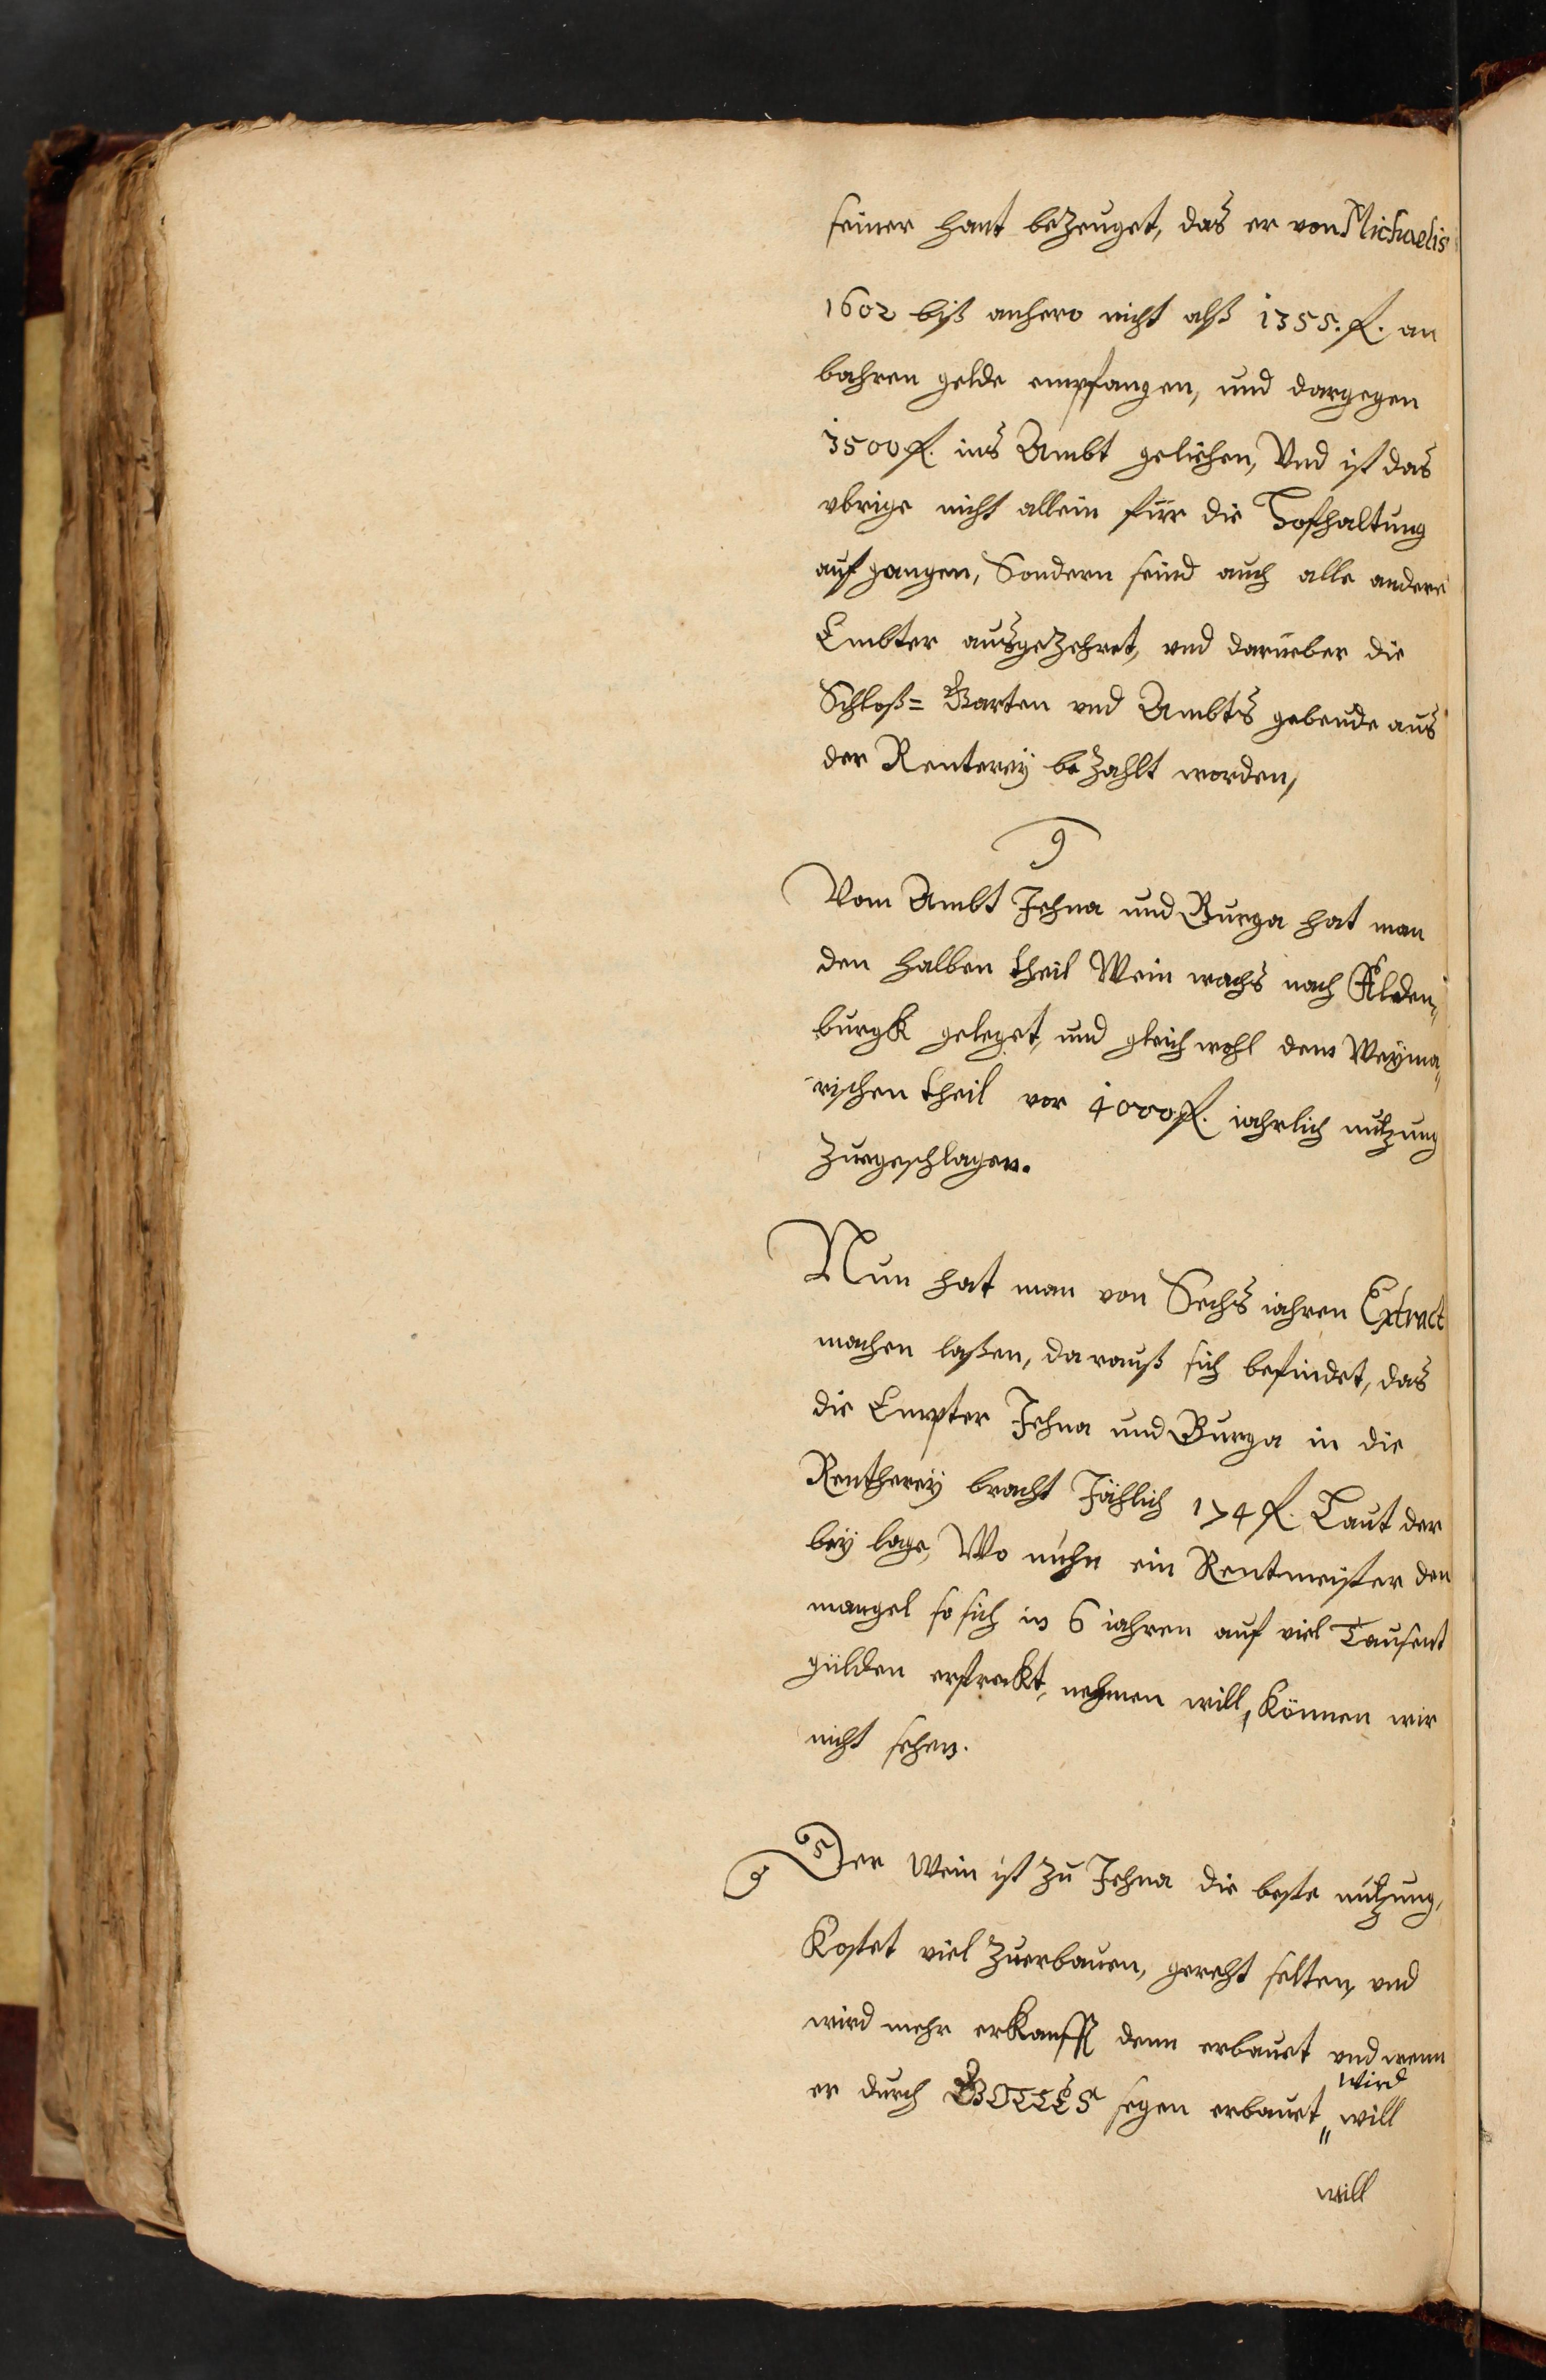 seiner hant bezeuget, das er von Michaelis
1602 biß anhero nicht alß 1355. fl. an
bahren gelde empfangen, und dargegen
3500 fl. ins Ambt geliehen, Vnd ist das
vbrige nicht allein für die Hofhaltung
aufgangen, Sondern seind auch alle andere
Embter ausgezehret, vnd darüeber die
Schloß= Garten vnd Ambts gebeude aus
der Renterey bezahlt worden,
9
Vom Ambt Jehna und Burga hat man
den halben theil Wein wachs nach Alden„
burgk geleget, und gleichwohl dem Weyma„
rischen theil vor 4000 fl. iahrlich nutzung
zuegeschlagen.
Nun hat man von Sechs iahren Extract
machen laßen, darauß sich befindet, das
die Empter Jehna und Burga in die
Rentherey bracht Jählich 174 fl. Laut der
bey lage, Wo nuhn ein Rentmeister den
mangel so sich in 6 iahren auf viel Tausent
gülden erstreckt, nehmen will, können wir
nicht sehen.
Der Wein ist zu Jehna die beste nutzung,
Kostet viel zuerbauen, gereht selten, vnd
wird mehr erkaufft denn erbauet vnd wenn
wird
er durch GOTTES segen erbauet „ will
will